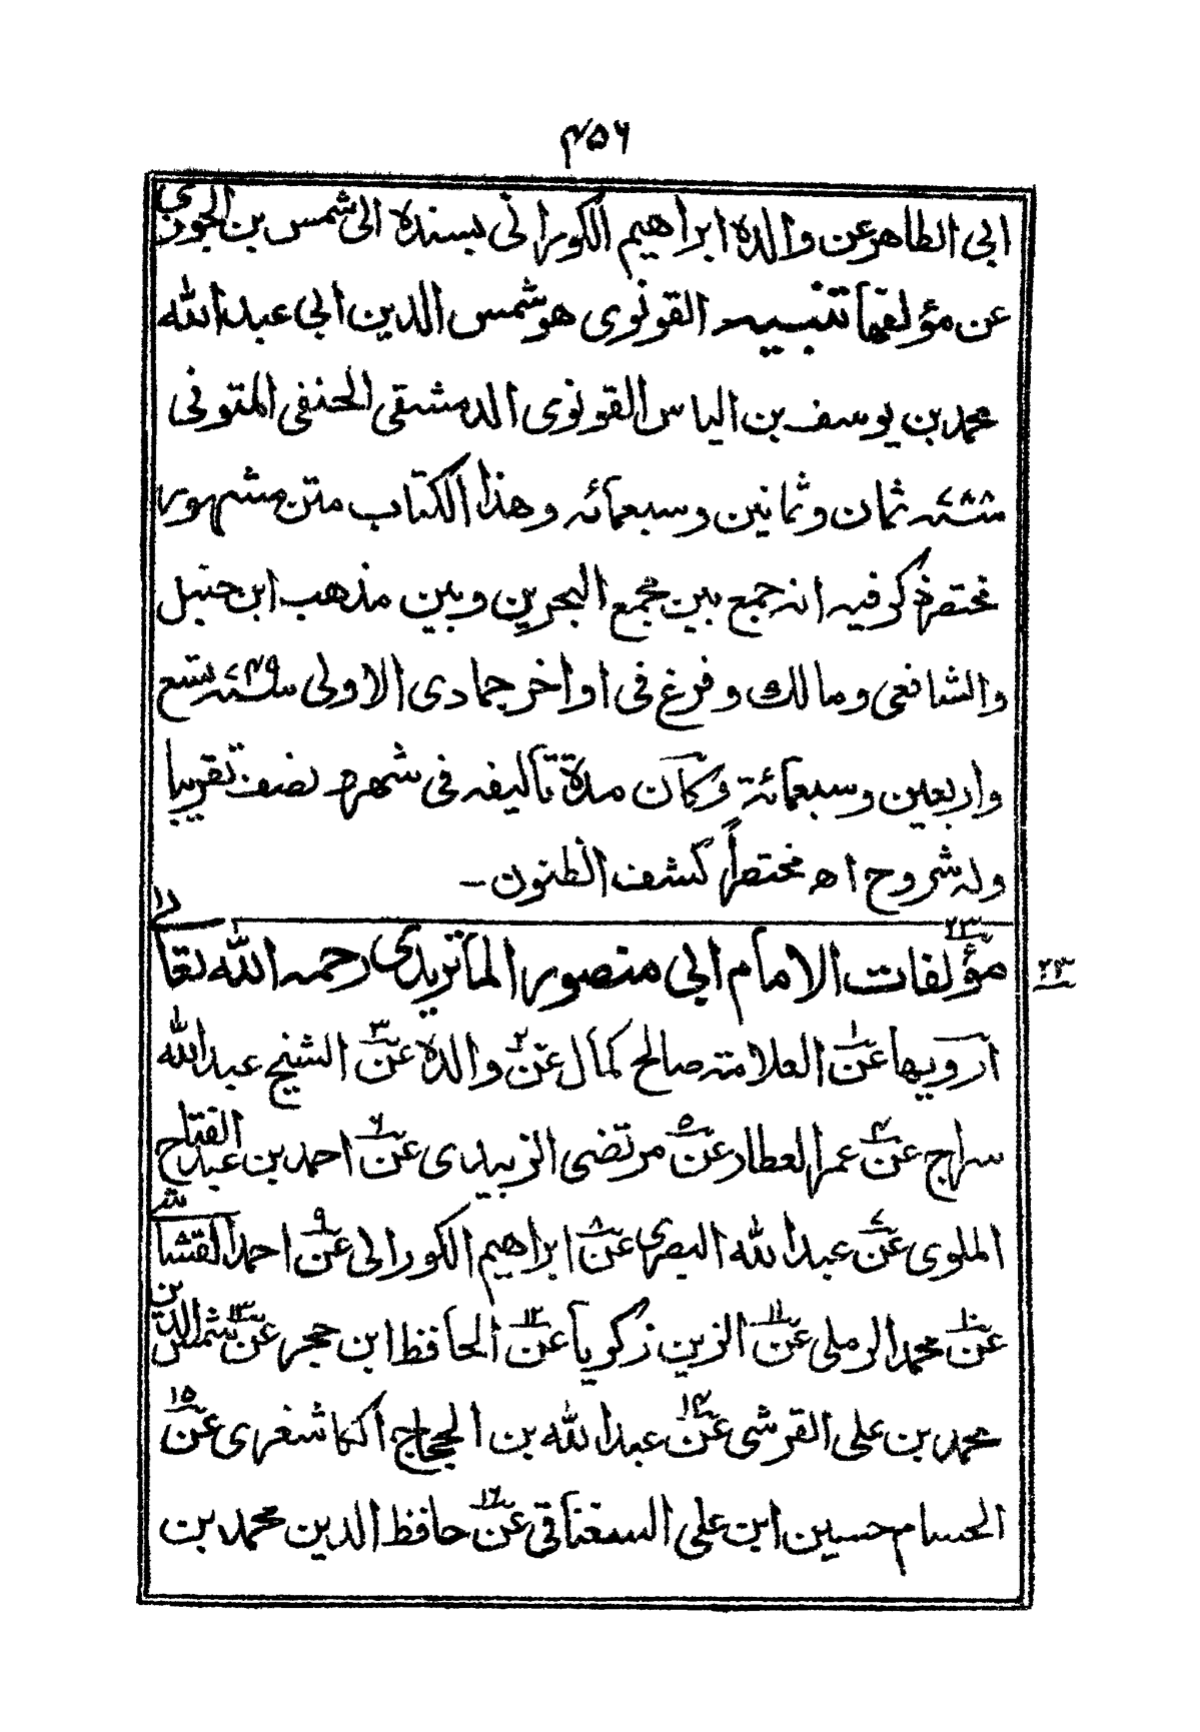 ٤٥٦
ابی الطاهر عن والده ابراهیم الکورانی بسنده الی شمس بن الجوزی
عن مؤلفها تنبیه القونوی هو شمس الدین ابی عبد الله
محمد بن یوسف بن الیاس القونوی الدمشقی الحنفی المتوفی
سنة ٧٨٨ ثمان وثمانین وسبعمائه وهذا الکتاب متن مشهور
مختصر ذکر فیه انه جمع بین مجمع البحرین وبین مذهب ابن حنبل
والشافعی ومالك وفرغ فی اواخر جمادی الاولی سنة ٧٤٩ تسع
واربعین وسبعمائة وکان مدة تألیفه فی شهر و نصف تقریبا
وله شروح اه مختصراً کشف الظنون ـ
٢٣ مؤلفات الامام ابی منصور الماتریدی رحمه الله تعالی ٢٣
ارویها عن ١ العلامة صالح کمال عن ٢ والده عن ٣ الشیخ عبد الله
سراج عن ٤ عمر العطار عن ٥ مرتضی الزبیدی عن ٦ احمد بن عبد الفتاح
الملوی عن ٧ عبد الله البصری عن ٨ ابراهیم الکورانی عن ٩ احمد القشاشی
عن ١٠ محمد الرملی عن ١١ الزین زکریا عن ١٢ الحافظ ابن حجر عن ١٣ شمس الدین
محمد بن علی القرشی عن ١٤ عبد الله بن الحجاج الکاشغری عن ١٥
الحسام حسین ابن علی السغناقی عن ١٦ حافظ الدین محمد بن